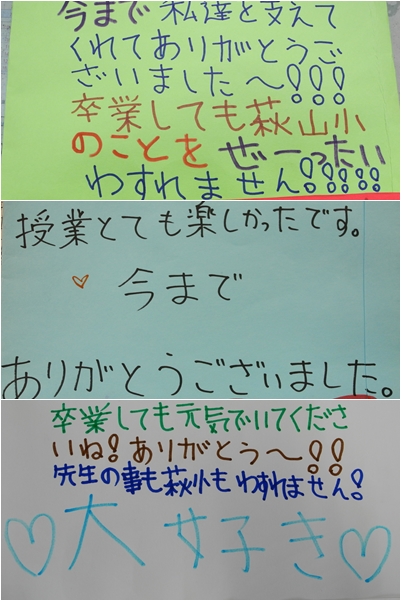 今まで私達を支えて
くれてありがとうご
ざいました〜!!!
卒業しても萩山小
のことをぜーったい
わすれません!!!!!
授業とても楽しかったです。
♡今まで
ありがとうございました。
卒業しても元気でいてくださ
いね!ありがとう〜!!
先生の事も萩小もわすれません!
♡大好き♡